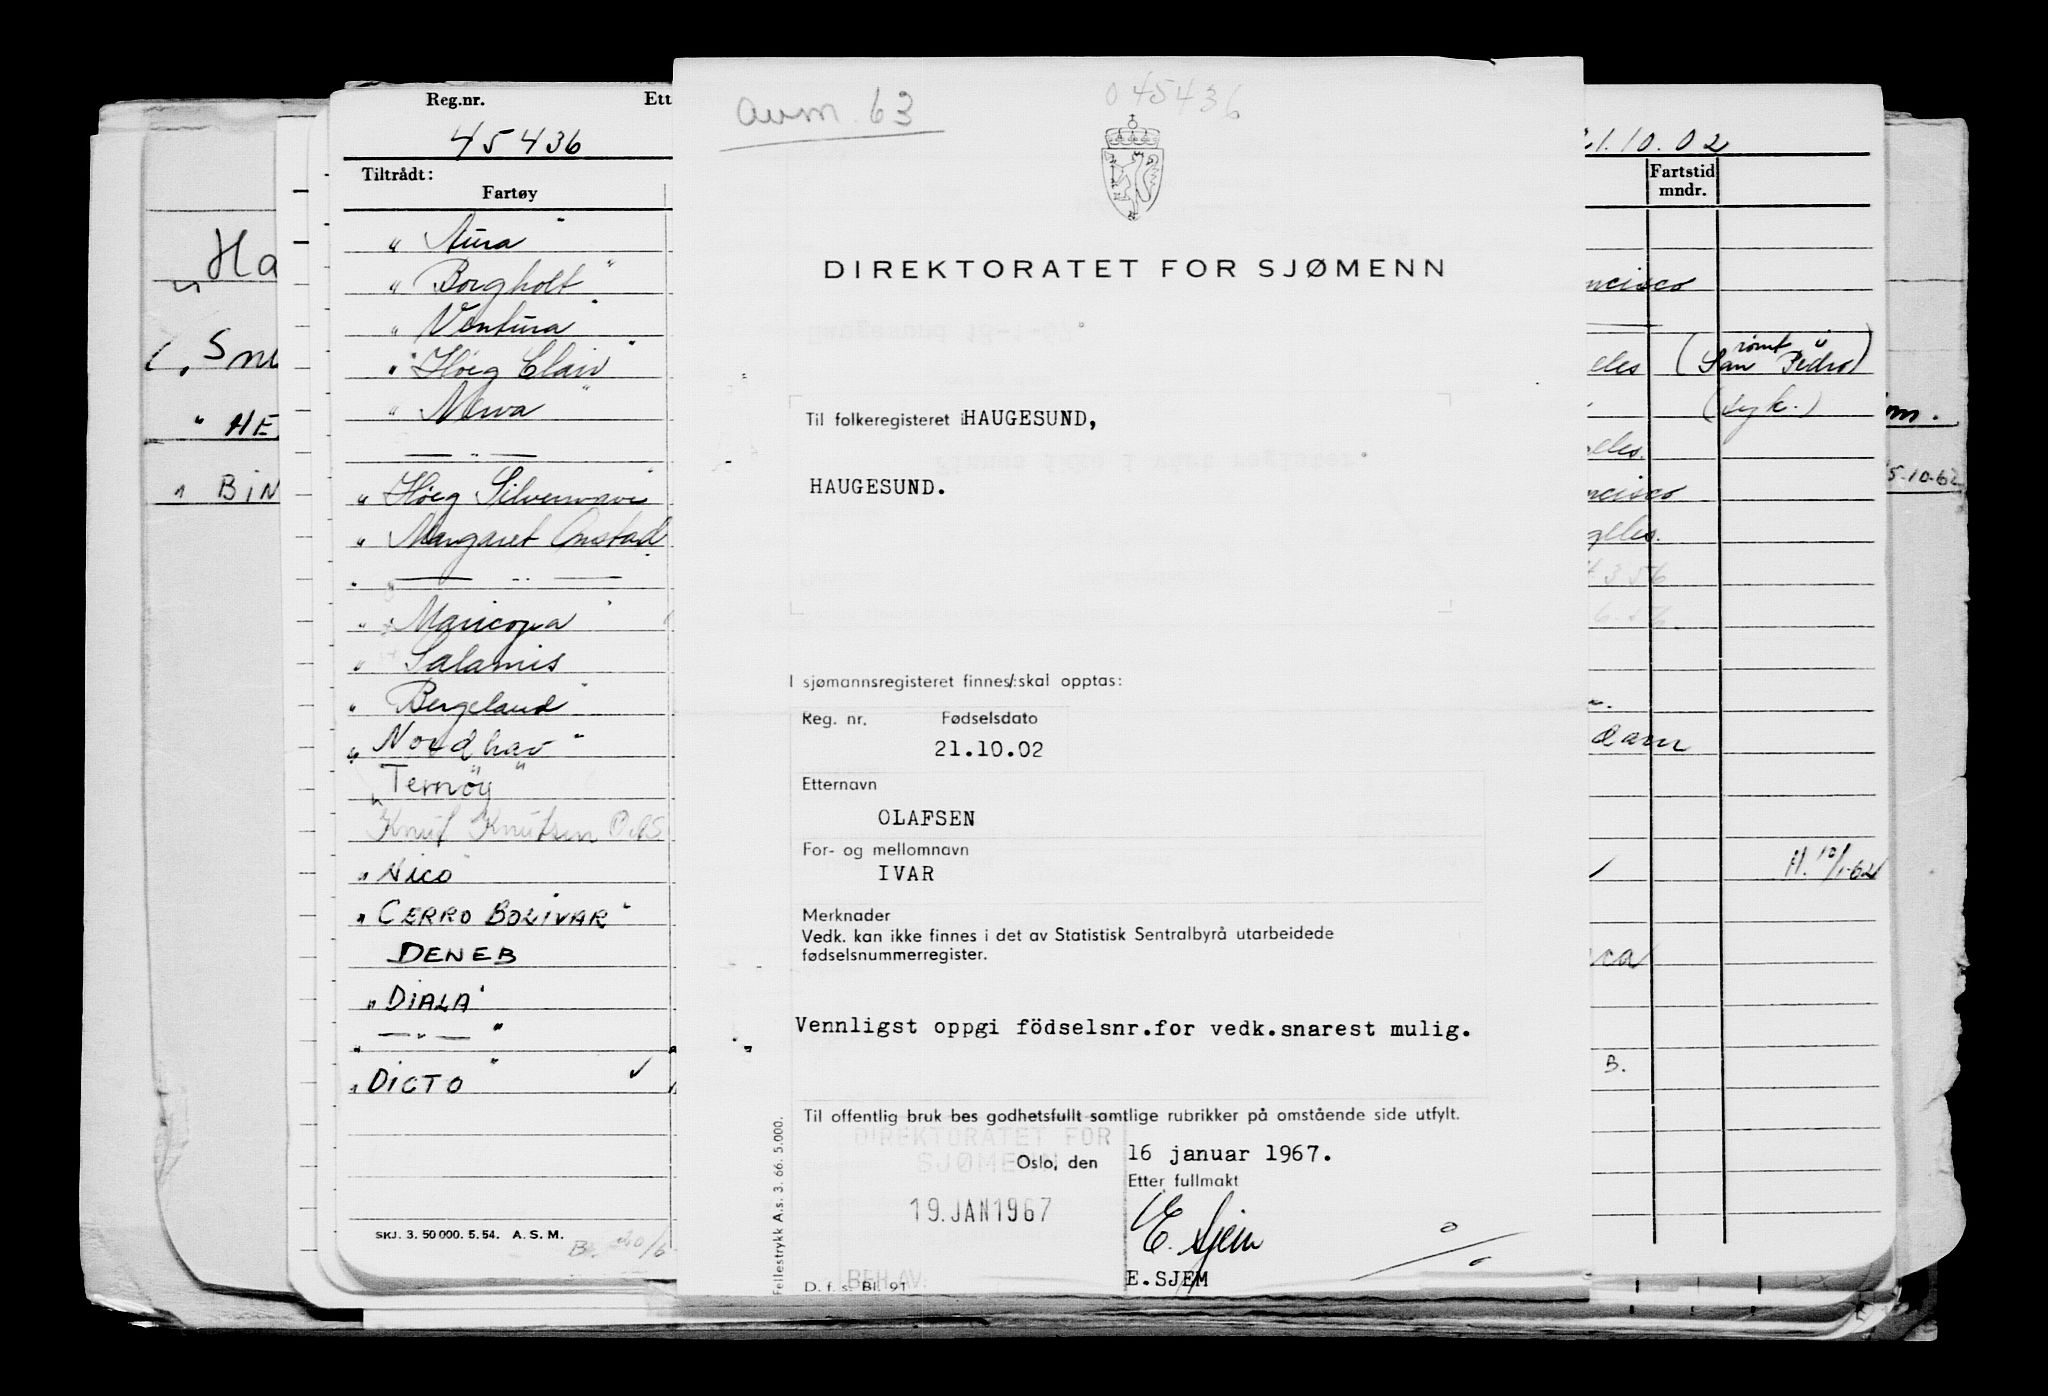 Reg.nr.
Ett
45436
Tiltrådt:
Fartøy
" Aura "
" Borgholt "
" Ventura "
" Høeg Clair "
" Merva "
— " —
" Høeg Silverwave
" Margaret Onstad
" — " —
" Maricopa "
" Salamis
" Bergeland "
" Nordhav "
" Ternöy "
Knut Knutsen OAS
" Nico
" CERRO BOLIVAR "
DENEB
" DIALA "
" — " — "
" DICTO " ✓
SKJ. 3. 50 000. 5. 54. A. S. M.
Ha
Sn
" HE
" BIN
avm. 63
045436
DIREKTORATET FOR SJØMENN
Til folkeregisteret i HAUGESUND,
HAUGESUND.
I sjømannsregisteret finnes/:skal opptas:
Reg. nr. Fødselsdato
21.10.02
Etternavn
OLAFSEN
For- og mellomnavn
IVAR
Merknader
Vedk. kan ikke finnes i det av Statistisk Sentralbyrå utarbeidede
fødselsnummerregister.
Vennligst oppgi födselsnr.for vedk.snarest mulig.
Til offentlig bruk bes godhetsfullt samtlige rubrikker på omstående side utfylt.
DIREKTORATET FOR
SJØMENN
Oslo, den 16 januar 1967.
Etter fullmakt
19.JAN1967
E. Sjem
E.SJEM
BEH.AV:
D. f. s. Bl. 91
Fellestrykk A.s. 3. 66. 5.000.
21.10.02
Fartstid
mndr.
ncisco
eles (rømt i
San Pedro)
(syk.)
geles.
ncisco
geles.
4 3 56
6.56
dam
H. 10/1-62
ca
B.
om.
5.10.62